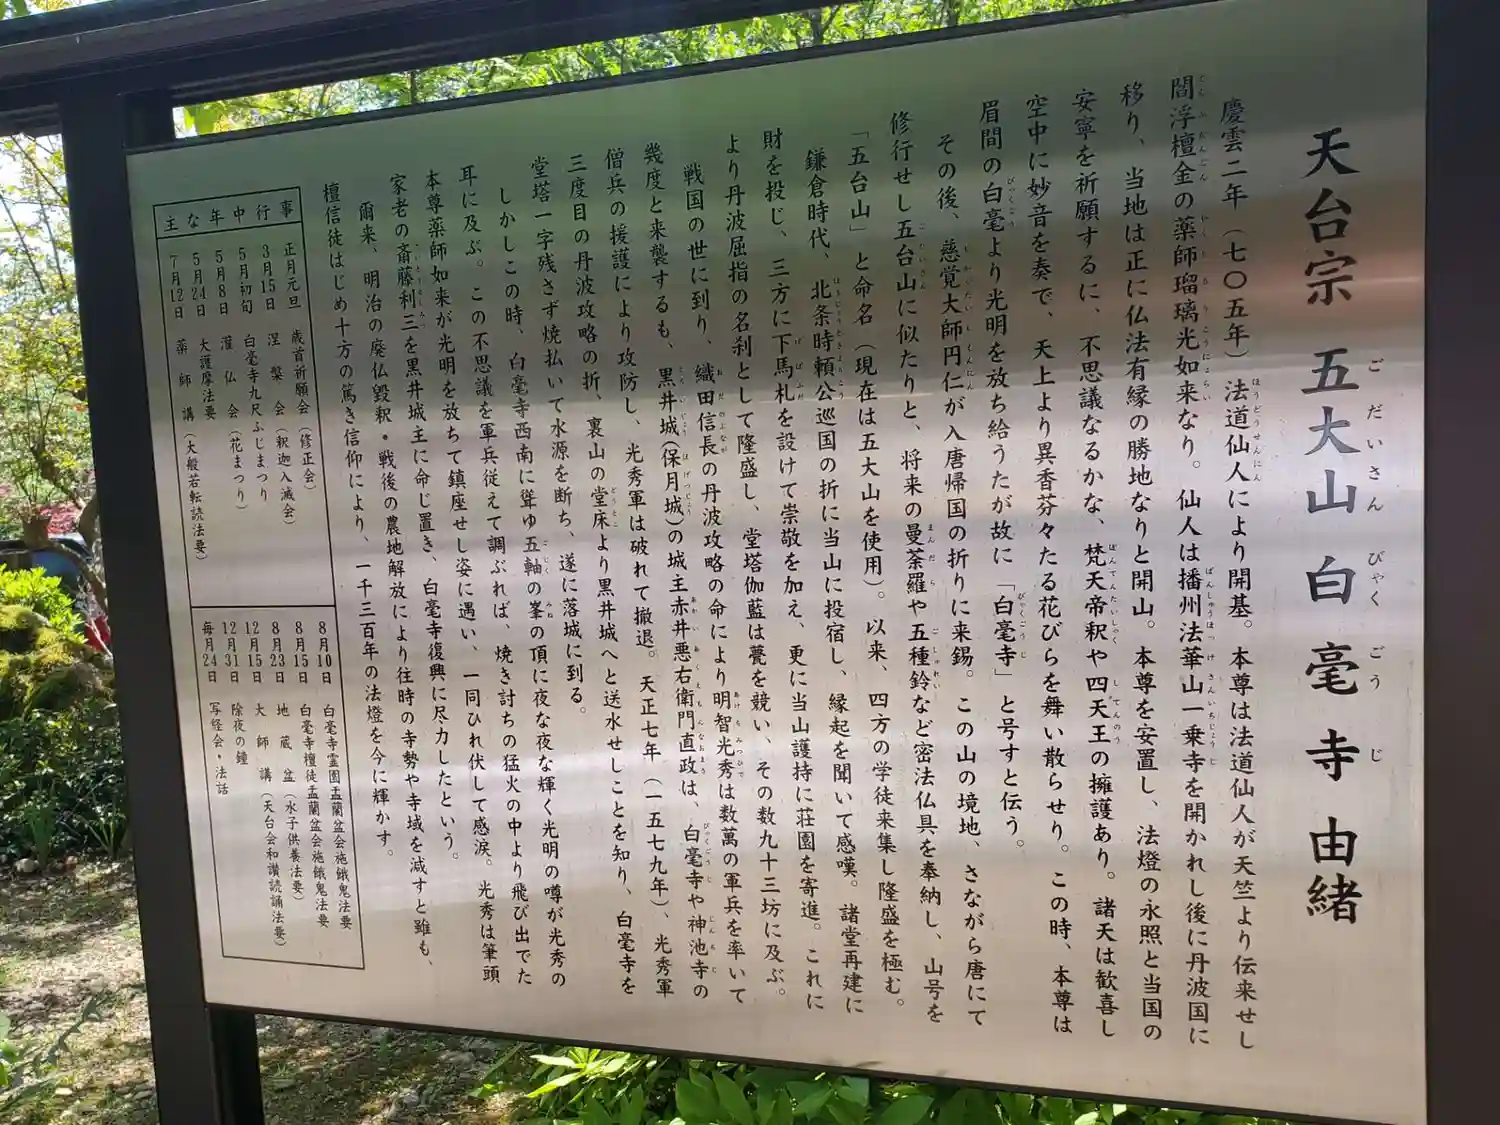 天台宗 五大山 白毫寺 由緒
ごだいさん びゃくごうじ
慶雲二年（七〇五年）法道仙人により開基。本尊は法道仙人が天竺より伝来せし
閻浮檀金の薬師瑠璃光如来なり。仙人は播州法華山一乗寺を開かれし後に丹波国に
移り、当地は正に仏法有縁の勝地なりと開山。本尊を安置し、法燈の永照と当国の
安寧を祈願するに、不思議なるかな、梵天帝釈や四天王の擁護あり。諸天は歓喜し
空中に妙音を奏で、天上より異香芬々たる花びらを舞い散らせり。この時、本尊は
眉間の白毫より光明を放ち給うたが故に「白毫寺」と号すと伝う。
その後、慈覚大師円仁が入唐帰国の折りに来錫。この山の境地、さながら唐にて
修行せし五台山に似たりと、将来の曼荼羅や五種鈴など密法仏具を奉納し、山号を
「五台山」と命名（現在は五大山を使用）。以来、四方の学徒来集し隆盛を極む。
鎌倉時代、北条時頼公巡国の折に当山に投宿し、縁起を聞いて感嘆。諸堂再建に
財を投じ、三方に下馬札を設けて崇敬を加え、更に当山護持に荘園を寄進。これに
より丹波屈指の名刹として隆盛し、堂塔伽藍は甍を競い、その数九十三坊に及ぶ。
戦国の世に到り、織田信長の丹波攻略の命により明智光秀は数萬の軍兵を率いて
幾度と来襲するも、黒井城（保月城）の城主赤井悪右衛門直政は、白毫寺や神池寺の
僧兵の援護により攻防し、光秀軍は破れて撤退。天正七年（一五七九年）、光秀軍
三度目の丹波攻略の折、裏山の堂床より黒井城へと送水せしことを知り、白毫寺を
堂塔一字残さず焼払いて水源を断ち、遂に落城に到る。
しかしこの時、白毫寺西南に聳ゆ五軸の峯の頂に夜な夜な輝く光明の噂が光秀の
耳に及ぶ。この不思議を軍兵従えて調ぶれば、焼き討ちの猛火の中より飛び出でた
本尊薬師如来が光明を放ちて鎮座せし姿に遇い、一同ひれ伏して感涙。光秀は筆頭
家老の斎藤利三を黒井城主に命じ置き、白毫寺復興に尽力したという。
爾来、明治の廃仏毀釈・戦後の農地解放により往時の寺勢や寺域を減ずと雖も、
檀信徒はじめ十方の篤き信仰により、一千三百年の法燈を今に輝かす。
主な年中行事
正月元旦 歳首祈願会（修正会）
3月15日 涅槃会（釈迦入滅会）
5月初旬 白毫寺九尺ふじまつり
5月8日 灌仏会（花まつり）
5月24日 大護摩法要
7月12日 薬師講（大般若転読法要）
8月10日 白毫寺霊園盂蘭盆会施餓鬼法要
8月15日 白毫寺檀徒盂蘭盆会施餓鬼法要
8月23日 地蔵盆（水子供養法要）
12月15日 大師講（天台会和讃読誦法要）
12月31日 除夜の鐘
毎月24日 写経会・法話